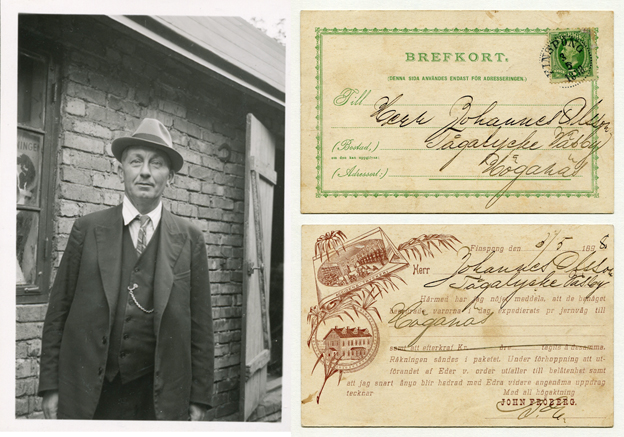 BREFKORT.
(DENNA SIDA ANVÄNDES ENDAST FÖR ADRESSERINGEN.)
Till
Herr Johannes Olsson
(Bostad,)
om den kan uppgifvas
Sågalycke Väsby
(Adressort:)
Höganäs
Finspong den 3/5 1898
Herr Johannes Olsson
Sågalycke Väsby
Härmed har jag nöjet meddela, att de benäget
varorna i dag expedierats pr jernväg till
Höganäs
samt att efterkraf Kr. öre tagits å densamma.
Räkningen sändes i paketet. Under förhoppning att ut-
förandet af Eder v. order utfaller till belåtenhet samt
att jag snart ånyo blir hedrad med Edra vidare angenäma uppdrag
tecknar Med all högaktning
JOHN FRÖBERG.